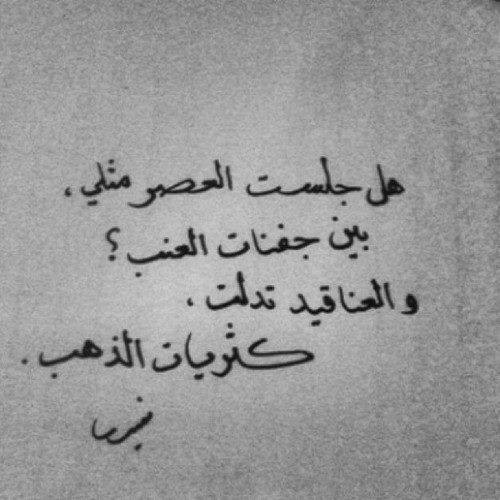 هل جلست العصر مثلي،
بين جفنات العنب؟
والعناقيد تدلت،
كثريات الذهب.